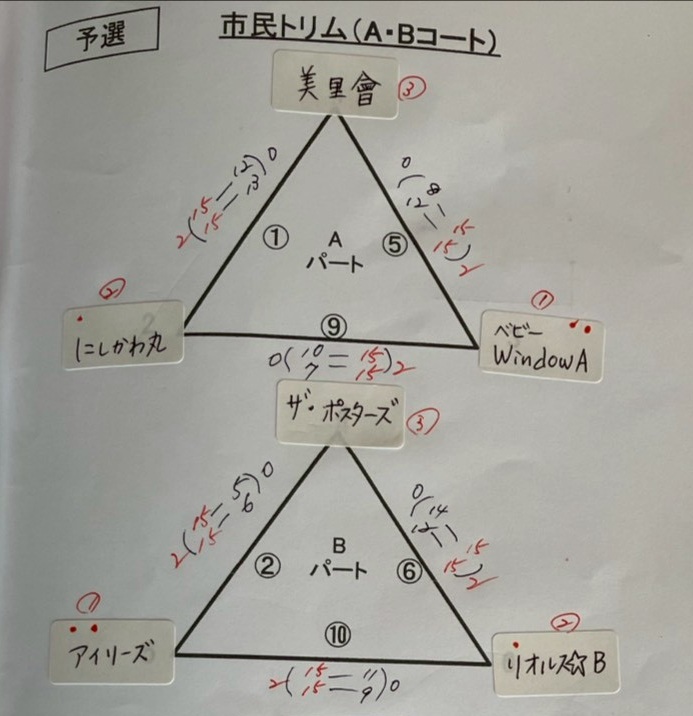 予選
市民トリム(A・Bコート)
美里會 ③
2(15-12)0
15-13
0(8-15)2
12-15
① A ⑤
パート
②
にしかわ丸
⑨
①
ベビー
WindowA
0(10=15)2
7 15
ザ・ポスターズ ③
2(15-5)0
15-6
0(14-15)2
12-15
② B ⑥
パート
①
アイリーズ
⑩
②
リオルズ☆B
2(15=11)0
15 9